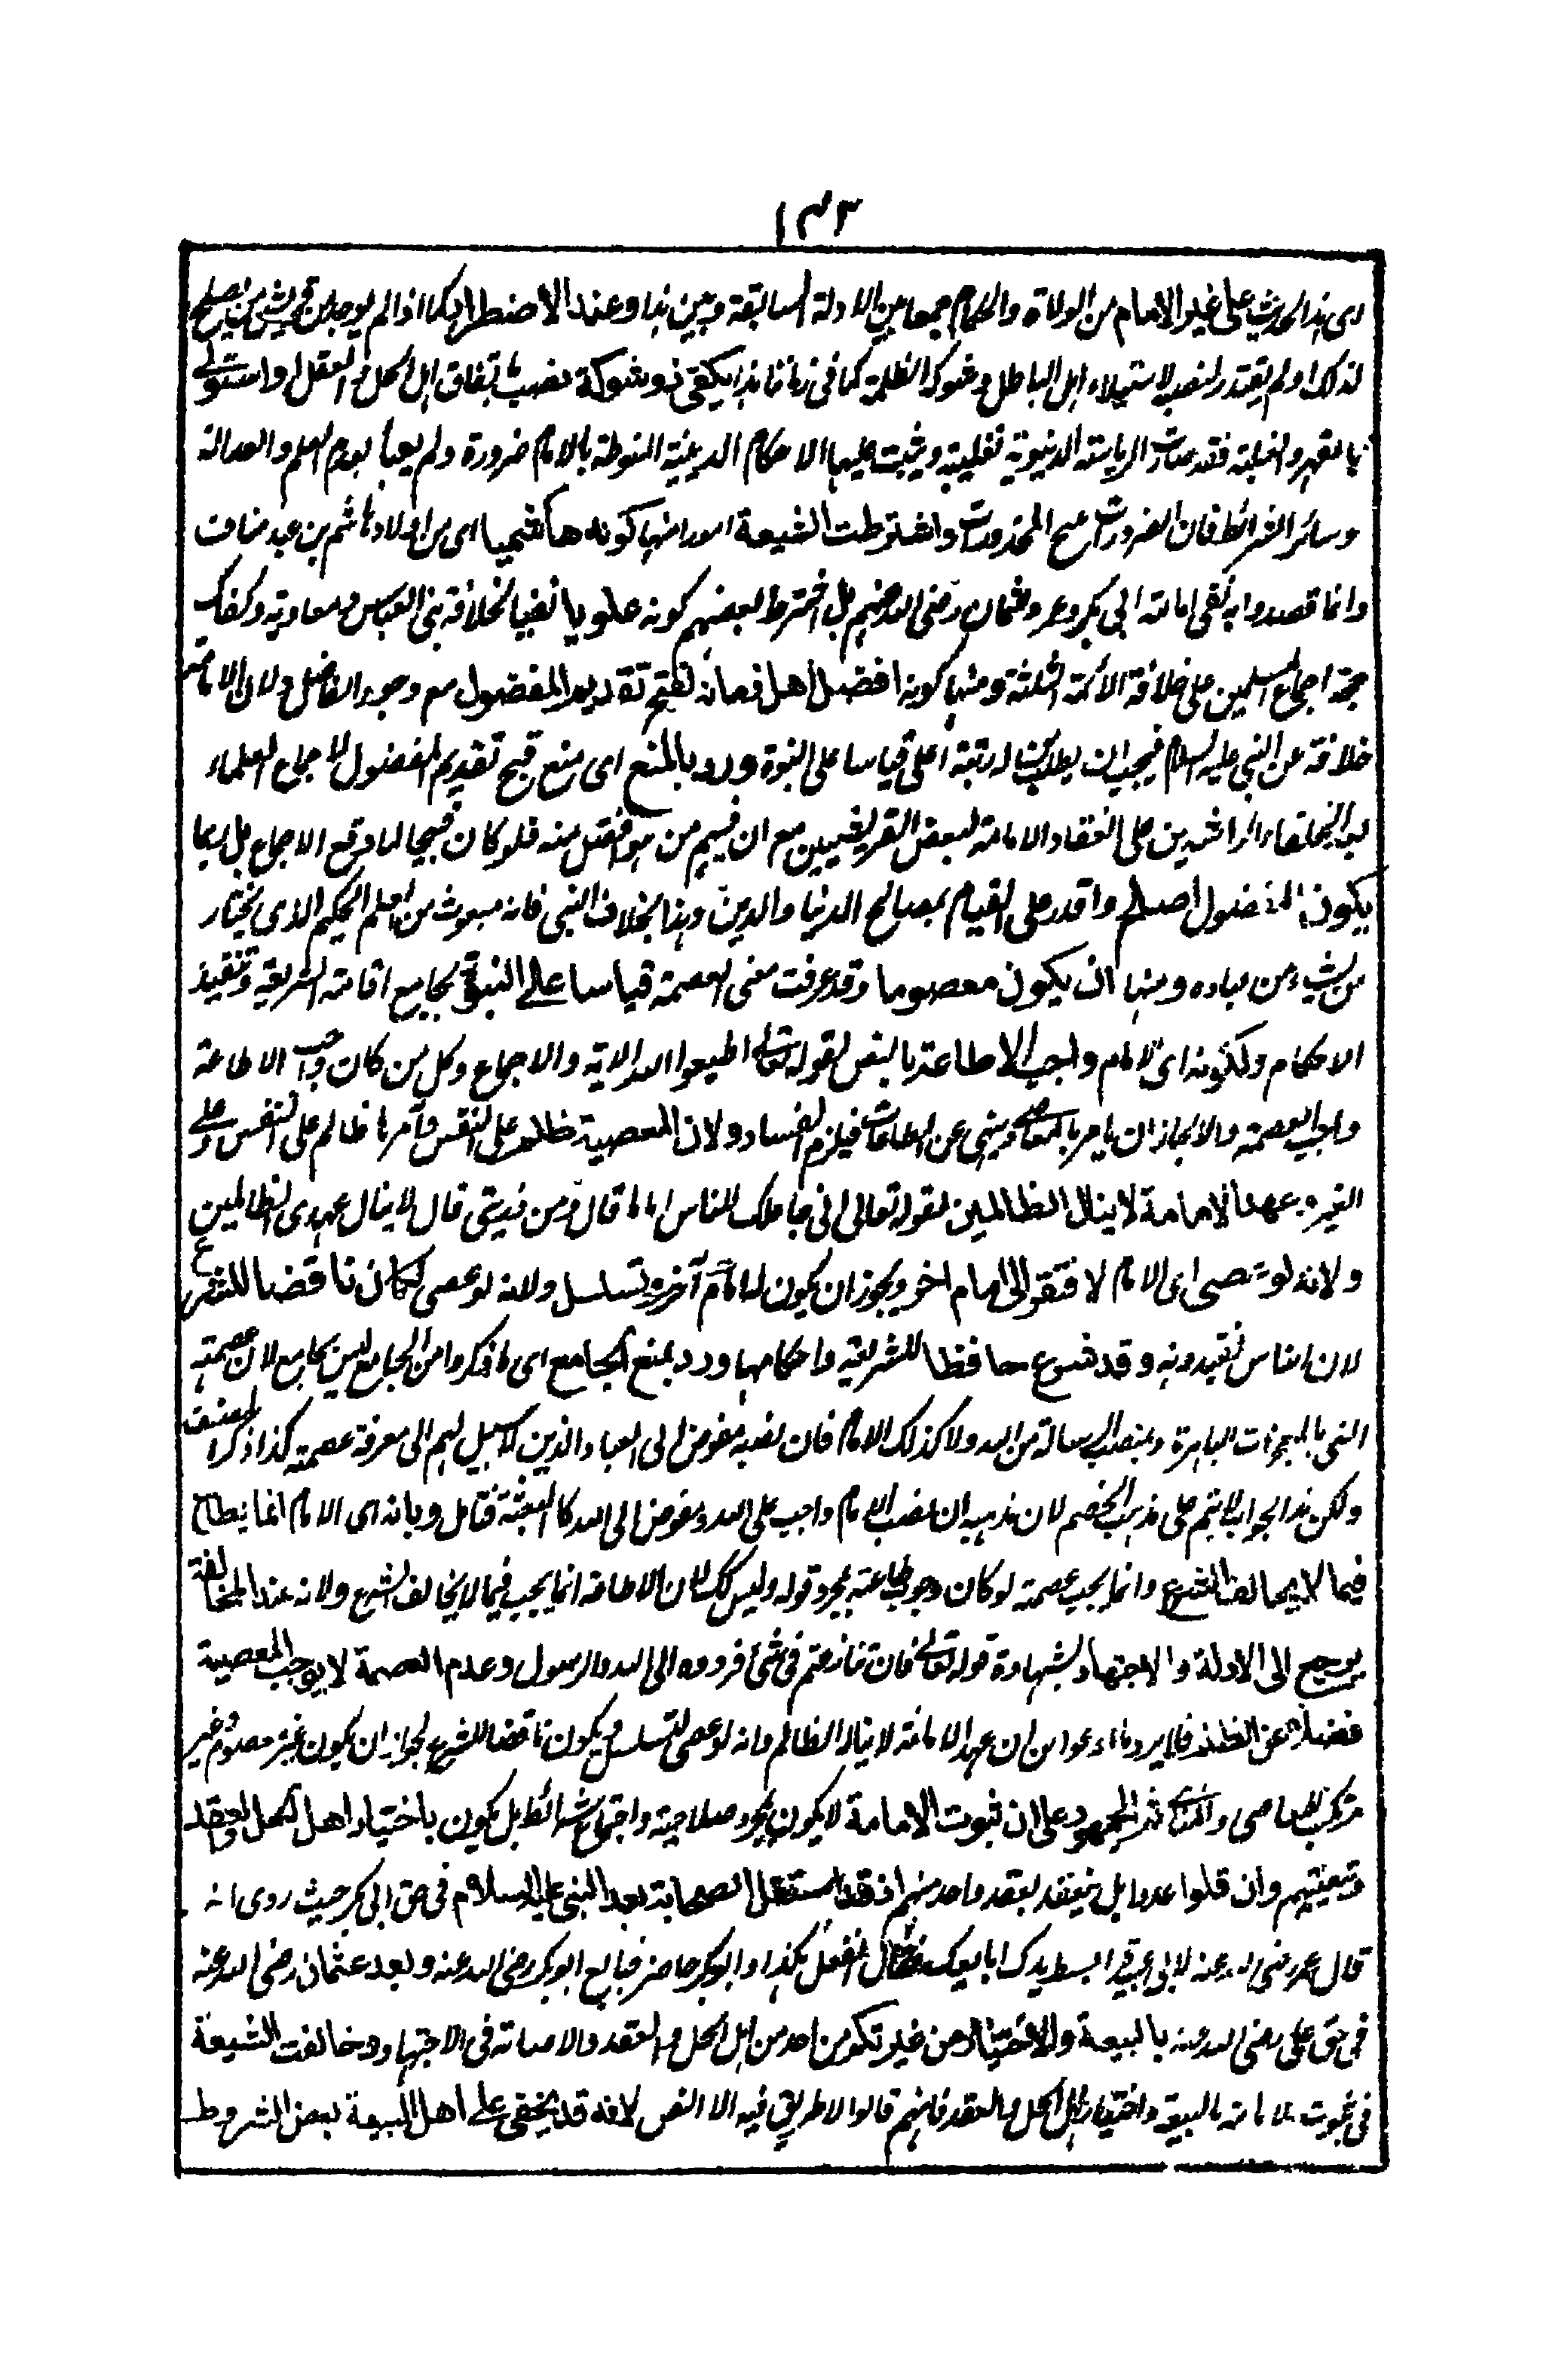 ١٣٣
اى هذا الحديث على غير الامام من الولاة والحكام جمعا بين الادلة السابقة وبين هذا وعند الاضطرار كما اذا لم يوجد من قريش من يصلح
لذلك او لم يقتدر لنصبه لاستيلاء اهل الباطل وشوكة الظلمة كما فى زماننا هذا يكفى ذو شوكة نصب باتفاق اهل الحل والعقل او استولى
بالقهر والغلبة فقد صارت الرياسة الدنيوية تغلبية ويثبت عليها الاحكام الدينية المنوطة بالامام ضرورة ولم يعبأ بعدم العلم والعدالة
وسائر الشرائط فان الضرورات تبيح المحذورات واشترطت الشيعة امورا منها كونه هاشميا اى من اولاد هاشم بن عبد مناف
وانما قصدوا به نفى امامة ابى بكر وعمر وعثمان رضى الله عنهم بل اشترط بعضهم كونه علويا نفيا لخلافة بنى العباس ومعاوية وكفاك
حجة اجماع المسلمين على خلافة الائمة الثلثة ومنها كونه افضل اهل زمانه لقبح تقديم المفضول مع وجود الفاضل ولان الامامة
خلافة عن النبى عليه السلام فيجب ان يطلب لها رتبة اعلى قياسا على النبوة ورد بالمنع اى منع قبح تقديم المفضول لاجماع العلماء
بعد الخلفاء الراشدين على انعقاد الامامة لبعض القريشيين مع ان فيهم من هو افضل منه فلو كان قبيحا لما وقع الاجماع بل ربما
يكون المفضول اصلح واقدر على القيام بمصالح الدنيا والدين وهذا بخلاف النبى فانه مبعوث من العلم الحكيم الذى يختار
من يشاء من عباده ومنها ان يكون معصوما وقد عرفت معنى العصمة قياسا على النبوة بجامع اقامة الشريعة وتنفيذ
الاحكام ولكونه اى الامام واجب الاطاعة بالنص لقوله تعالى اطيعوا الله الاية والاجماع وكل من كان واجب الاطاعة
واجب العصمة والا لجاز ان يامر بالمعاصى وينهى عن الطاعات فيلزم الفساد ولان المعصية ظلم على النفس وآمرها ظالم على النفس وعلى
الغير وعهد الامامة لا ينال الظالمين لقوله تعالى انى جاعلك للناس اماما قال ومن ذريتى قال لا ينال عهدى الظالمين
ولانه لو عصى اى الامام لافتقر الى امام اخر ويجوز ان يكون له امام آخر وتسلسل ولانه لو عصى لكان ناقضا للشرع
لان الناس يقتدونه وقد شرع حافظا للشريعة واحكامها ورد بمنع الجامع اى ما ذكروا من الجامع ليس بجامع لان عصمة
النبى بالمعجزات الباهرة وبنصب الرسالة من الله ولا كذلك الامام فان نصبه مفوض الى العباد الذين لا سبيل لهم الى معرفة عصمته كذا ذكر المصنف
ولكن هذا الجواب لا يتم على مذهب الخصم لان مذهبه ان نصب الامام واجب على الله ومفوض الى الله كالبعثة فتامل وبانه اى الامام انما يطاع
فيما لا يخالف الشرع وانما يجب عصمته لو كان وجوب طاعته بمجرد قوله وليس كك لان الاطاعة انما يجب فيما لا يخالف الشرع ولانه عند المخالفة
يرجع الى الادلة والاجتهاد بشهادة قوله تعالى فان تنازعتم فى شئ فردوه الى الله والرسول وعدم العصمة لا يوجب المعصية
فضلا عن الظلم فلا يرد ما ادعوا من ان عهد الامامة لا يناله الظالم وانه لو عصى لتسلسل ويكون ناقضا للشرع لجواز ان يكون غير معصوم وغير
مرتكب للمعاصى والمناهى ثم الجمهور على ان ثبوت الامامة لا يكون بمجرد صلاحيته واجتماع شرائطه بل يكون باختيار اهل الحل والعقد
وتعيينهم وان قلوا عددا بل ينعقد بعقد واحد منهم اذ قد استقل الصحابة بعد النبى عليه السلام فى حق ابى بكر حيث روى انه
قال عمر رضى الله عنه لابى عبيدة ابسط يدك ابايعك فقال اتفعل هكذا وابوبكر حاضر فبايع ابوبكر رضى الله عنه وبعد عثمان رضى الله عنه
فى حق على رضى الله عنه بالبيعة والاختيار من غير نكير من احد من اهل الحل والعقد والاصابة فى الاجتهاد وخالفت الشيعة
فى ثبوت الامامة بالبيعة واختيار اهل الحل والعقد فانهم قالوا لا طريق فيه الا النص لانه قد يخفى على اهل البيعة بعض الشروط